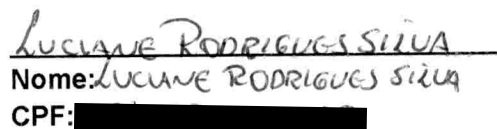 LUCIANE RODRIGUES SILVA
Nome: LUCIANE RODRIGUES SILVA
CPF: